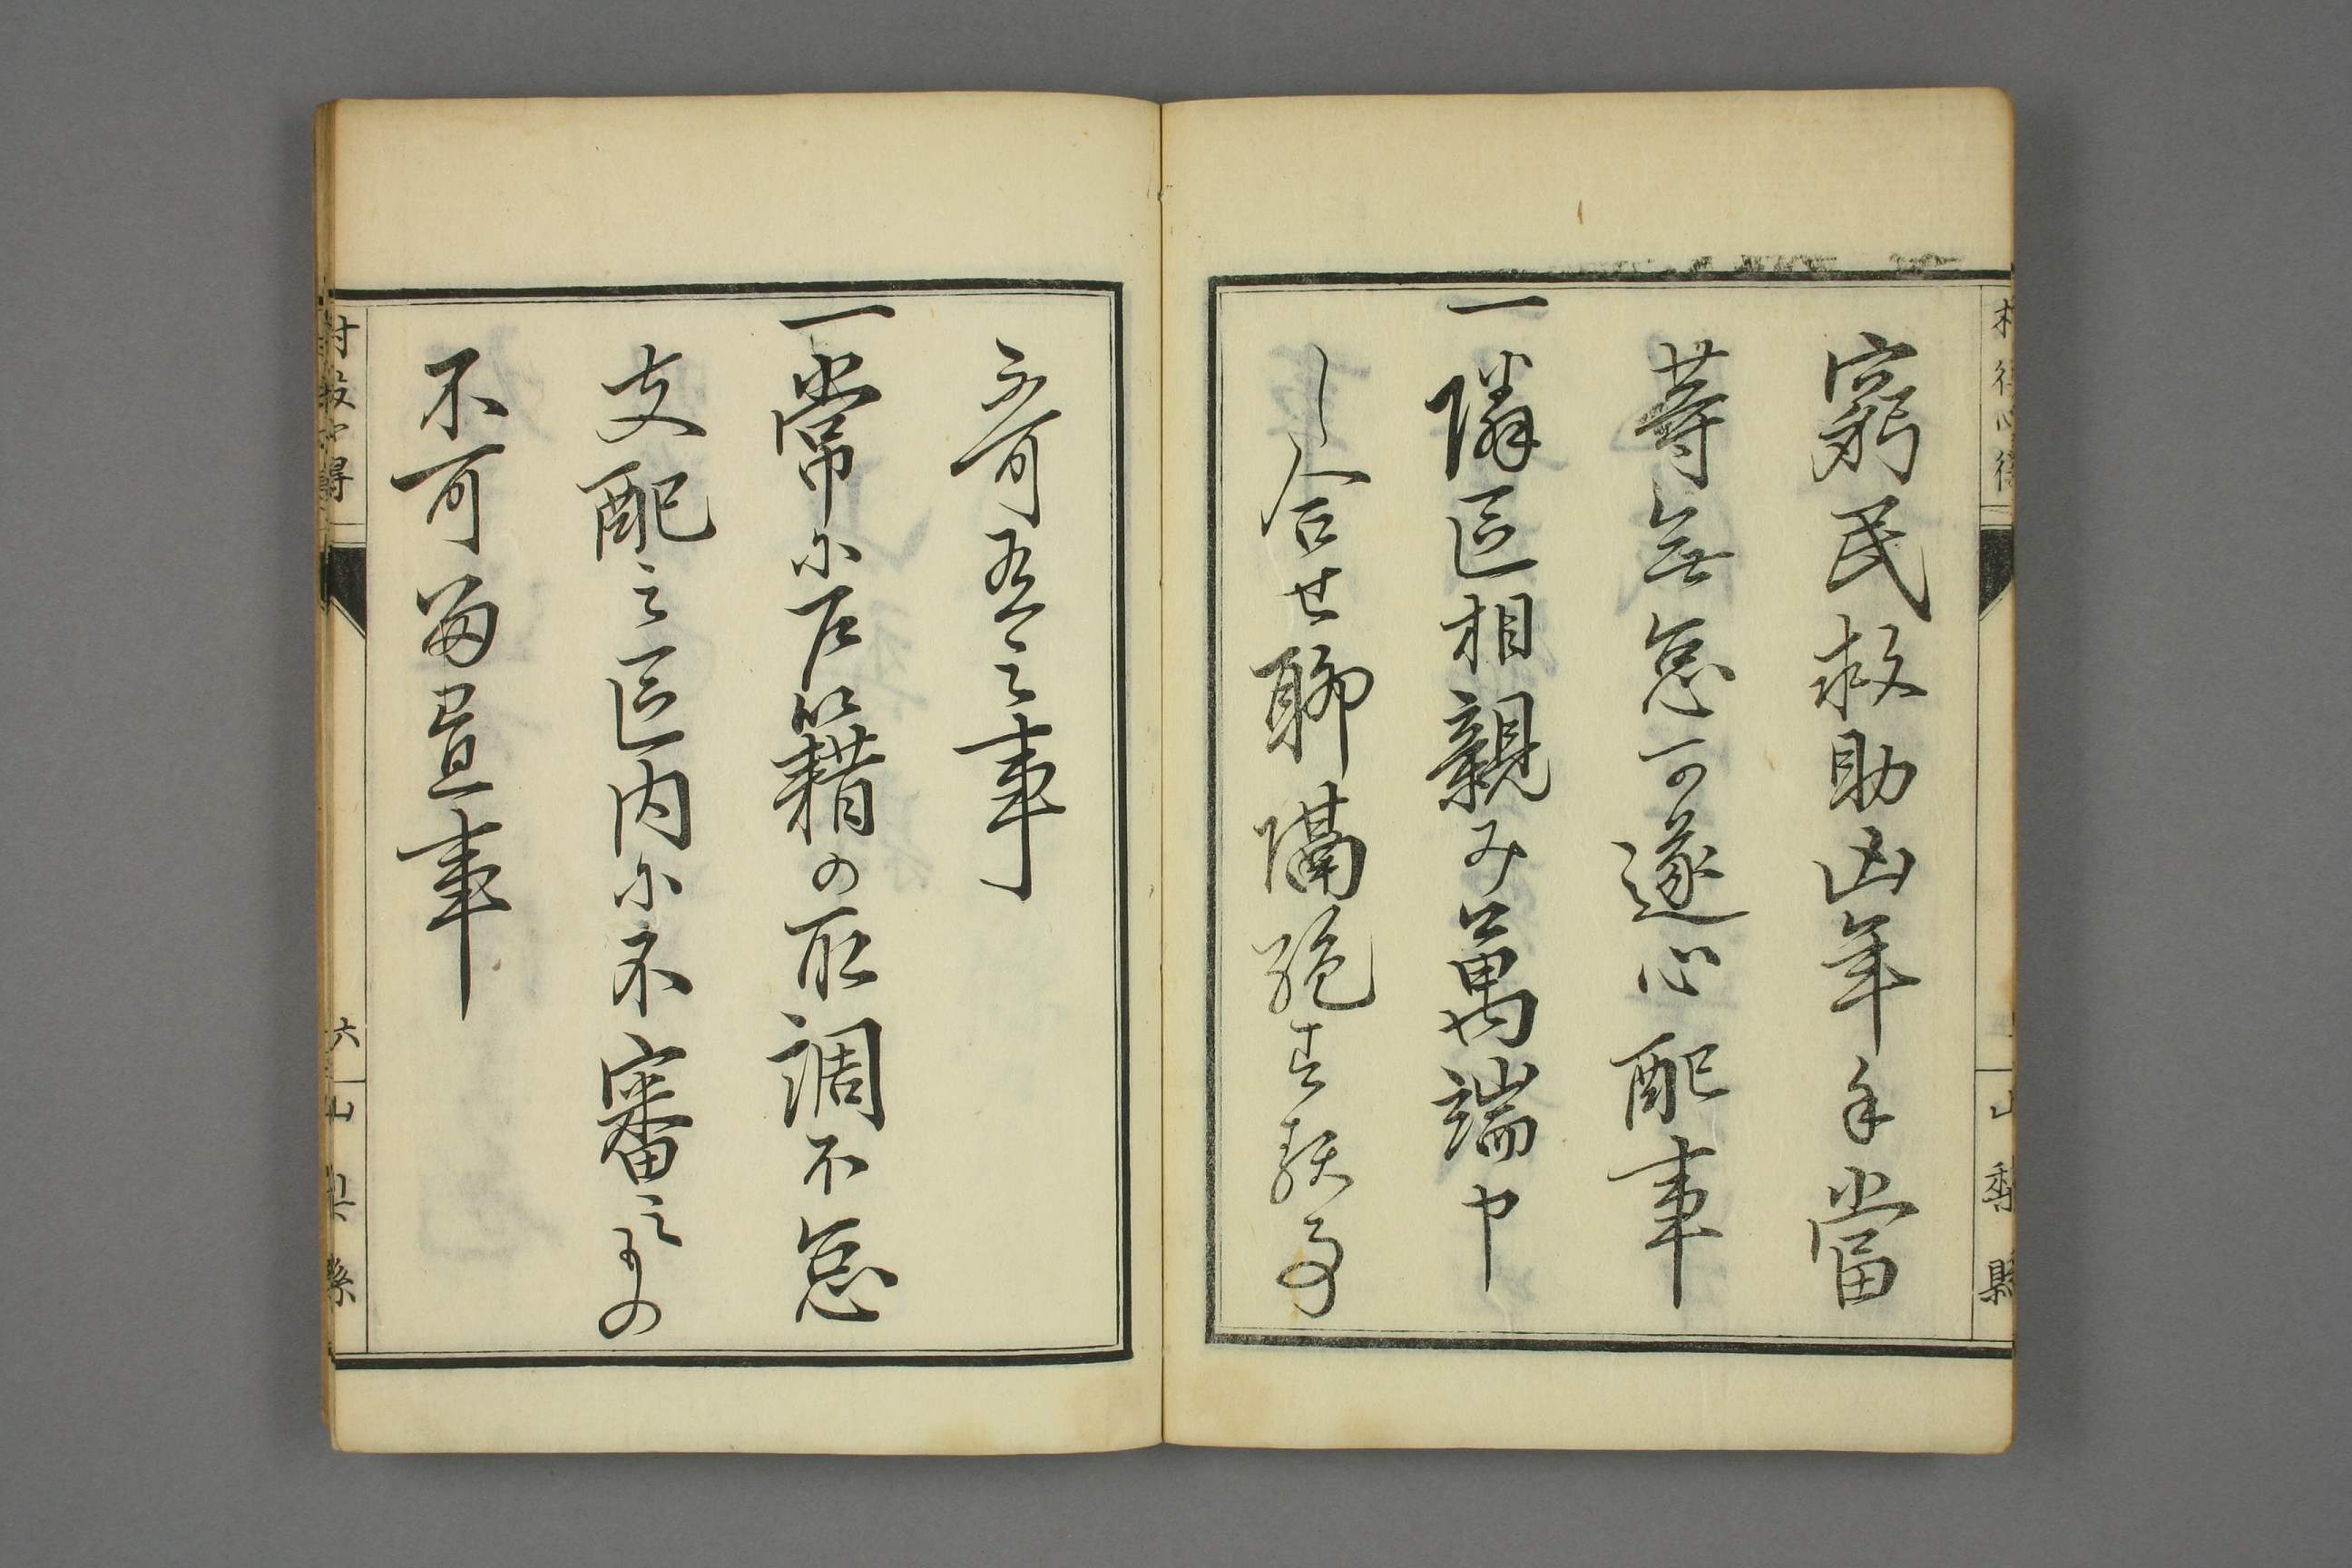 村役心得
山梨縣
窮民救助凶年手當
等無怠可遂心配事
一隣區相親み萬端申
し合せ聊隔絶す類事
不可有之事
一常に戸籍の取調不怠
支配之區内に不審之もの
不可留置事
村役心得
六
山梨縣